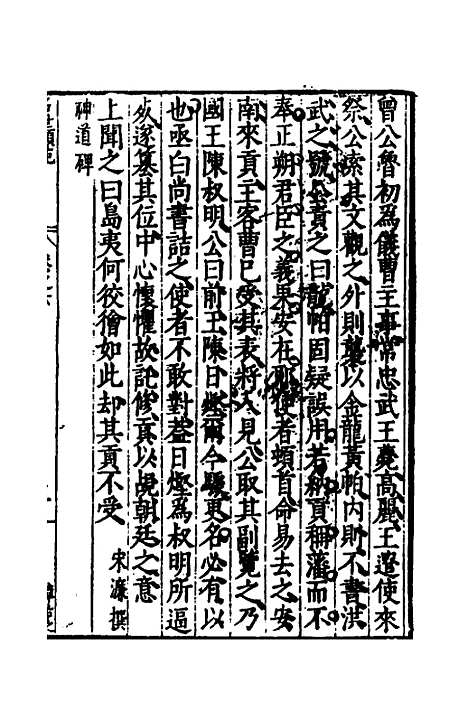 曾公魯初為儀曹主事常忠武王薨高麗王遣使來
祭公索其文觀之外則襲以金龍黃帕内則不書洪
武之號公責之曰龍帕固疑誤用若納貢稱藩而不
奉正朔君臣之義果安在耶使者頓首命易去之安
南來貢主客曹已受其表將入見公取其副覽之乃
國王陳叔明公曰前王陳日熞爾今驟更名必有以
也亟白尚書詰之使者不敢對蓋日熞為叔明所逼
死遂篡其位中心懷懼故託修貢以覘朝廷之意
上聞之曰島夷何狡獪如此却其貢不受
宋濂撰
神道碑